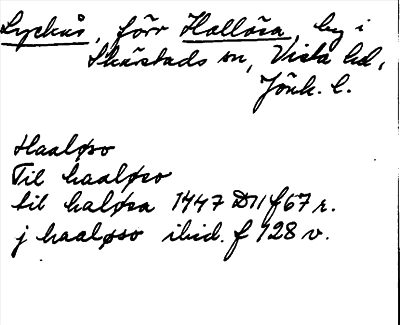 Lyckås, förr Hallösa, by i
Skärstads sn, Vista hd,
Jönk. l.
Haaløso
Til haaløso
til haløsa 1447 D11 f 67 r.
j haaløso ibid. f 128 v.